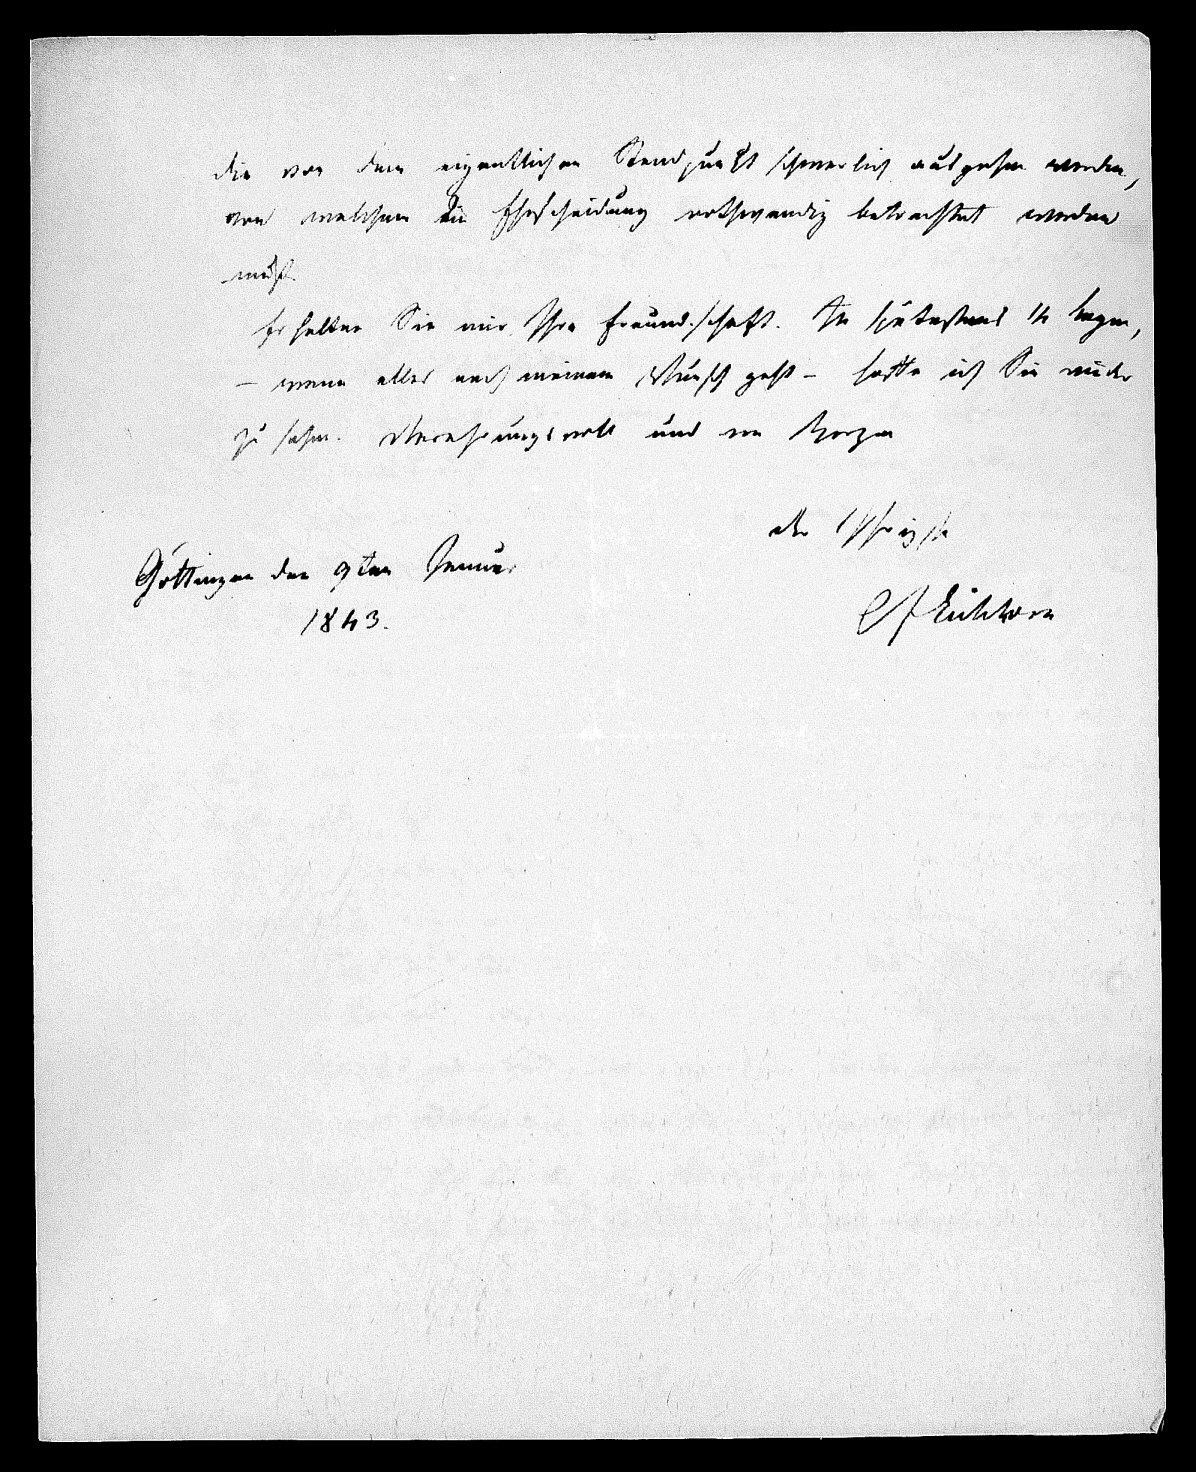 die von dem eigentlichen Standpunkt schwerlich ausgehen werden,
von welchem die Ehescheidung nothwendig betrachtet werden
muß.
Erhalten Sie mir Ihre Freundschaft. In spätestens 14 Tagen,
– wenn alles nach meinem Wunsch geht – hoffe ich Sie wieder
zu sehen. Verehrungsvoll und von Herzen
der Ihrigste
Göttingen den 9ten Januar
1843.
CF Eichhorn